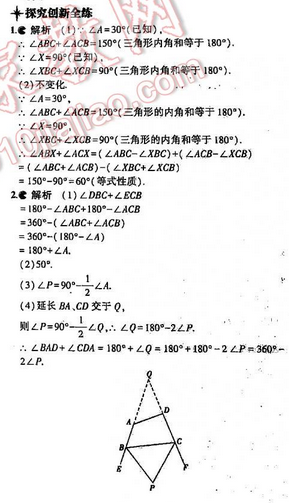 探究创新全练
1. 解析 (1)∵∠A=30°(已知),
∴∠ABC+∠ACB=150°(三角形内角和等于180°).
∵∠X=90°(已知),
∴∠XBC+∠XCB=90°(三角形内角和等于180°).
(2)不变化.
∵∠A=30°,
∴∠ABC+∠ACB=150°(三角形的内角和等于180°).
∵∠X=90°,
∴∠XBC+∠XCB=90°(三角形的内角和等于180°).
∴∠ABX+∠ACX=(∠ABC-∠XBC)+(∠ACB-∠XCB)
=(∠ABC+∠ACB)-(∠XBC+∠XCB)
=150°-90°=60°(等式性质).
2. 解析 (1)∠DBC+∠ECB
=180°-∠ABC+180°-∠ACB
=360°-(∠ABC+∠ACB)
=360°-(180°-∠A)
=180°+∠A.
(2)50°.
(3)∠P=90°-1/2∠A.
(4)延长BA、CD交于Q,
则∠P=90°-1/2∠Q,∴∠Q=180°-2∠P.
∴∠BAD+∠CDA=180°+∠Q=180°+180°-2∠P=360°-
2∠P.
Q
A D
B C
E F
P